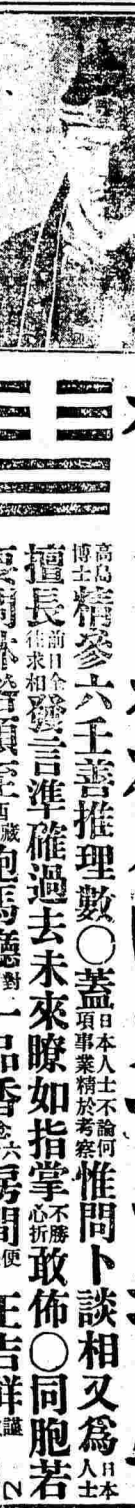 高島博士精參六壬善推理數〇蓋日本人士不論何項事業精於考察惟問卜談相又爲日本人士
擅長前日全往求相發言準確過去未來瞭如指掌不勝心折敢佈〇同胞若
西藏跑馬廳對一品香六房間便王吉祥謹
2